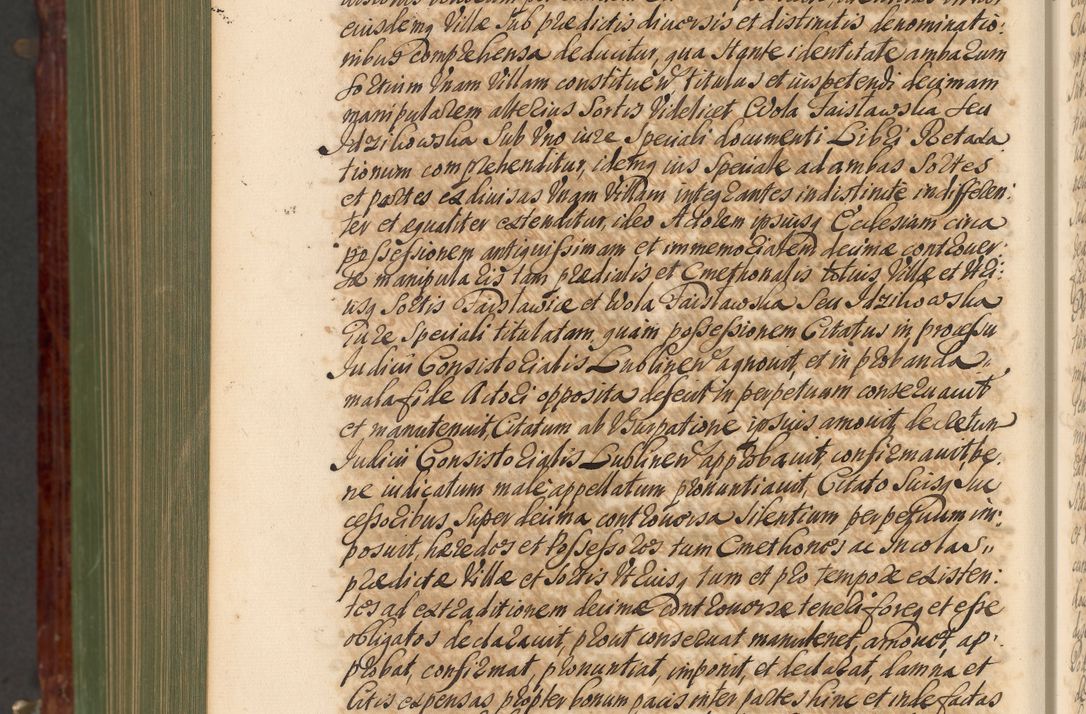 eiusdemq Villæ sub prædictis diversis et distinctis denominatio:
nibus comprehensa deducitur, qua stante identitate ambarum
sortium Vnam Villam constituen titulus et ius petendi decimam
manipularem alterius Sortis Videlicet Wola Faisławska seu
Idzikowska sub Vno iure speciali documenti Libri Retaxa
tionum comprehenditur, idemq ius speciale ad ambas Sortes
et partes ex divisas Vnam Villam integrantes indistinctè indifferen:
ter et æqualiter extenditur, ideo Actorem ipsiusq Ecclesiam circa
possessionem antiquissimam et immemorialem decimæ controver:
sæ manipularis tam prædialis et Cmethonalis totius Villæ et Vtri:
usq Sortis Faisławice et Wola Faisławska seu Idzikowska
iure speciali titulatam, quam possessionem Citatus in processu
Iudicii Consistorialis Lublinen agnovit, et in probanda
mala fide Actori opposita defecit in perpetuum conservavit
et manutenuit, Citatum ab Vsurpatione ipsius amovit, decretum
Iudicii Consistorialis Lublinen approbavit, confirmavit, be:
ne iudicatum male appellatum pronuntiavit, Citato suisq suc
cessoribus super decima controversa silentium perpetuum im:
posuit, hæredes et Possessores tum Cmethones ac Incolas
prædictæ Villæ et Sortis Vtriusq tum et pro tempore existen:
tes ad extraditionem decimæ controversæ teneri foreq et esse
obligatos declaravit, prout conservat manutenet, amovet, ap:
probat, confirmat, pronuntiat, imponit et declarat, damna et
litis expensas propter bonum pacis inter partes hinc et inde factas